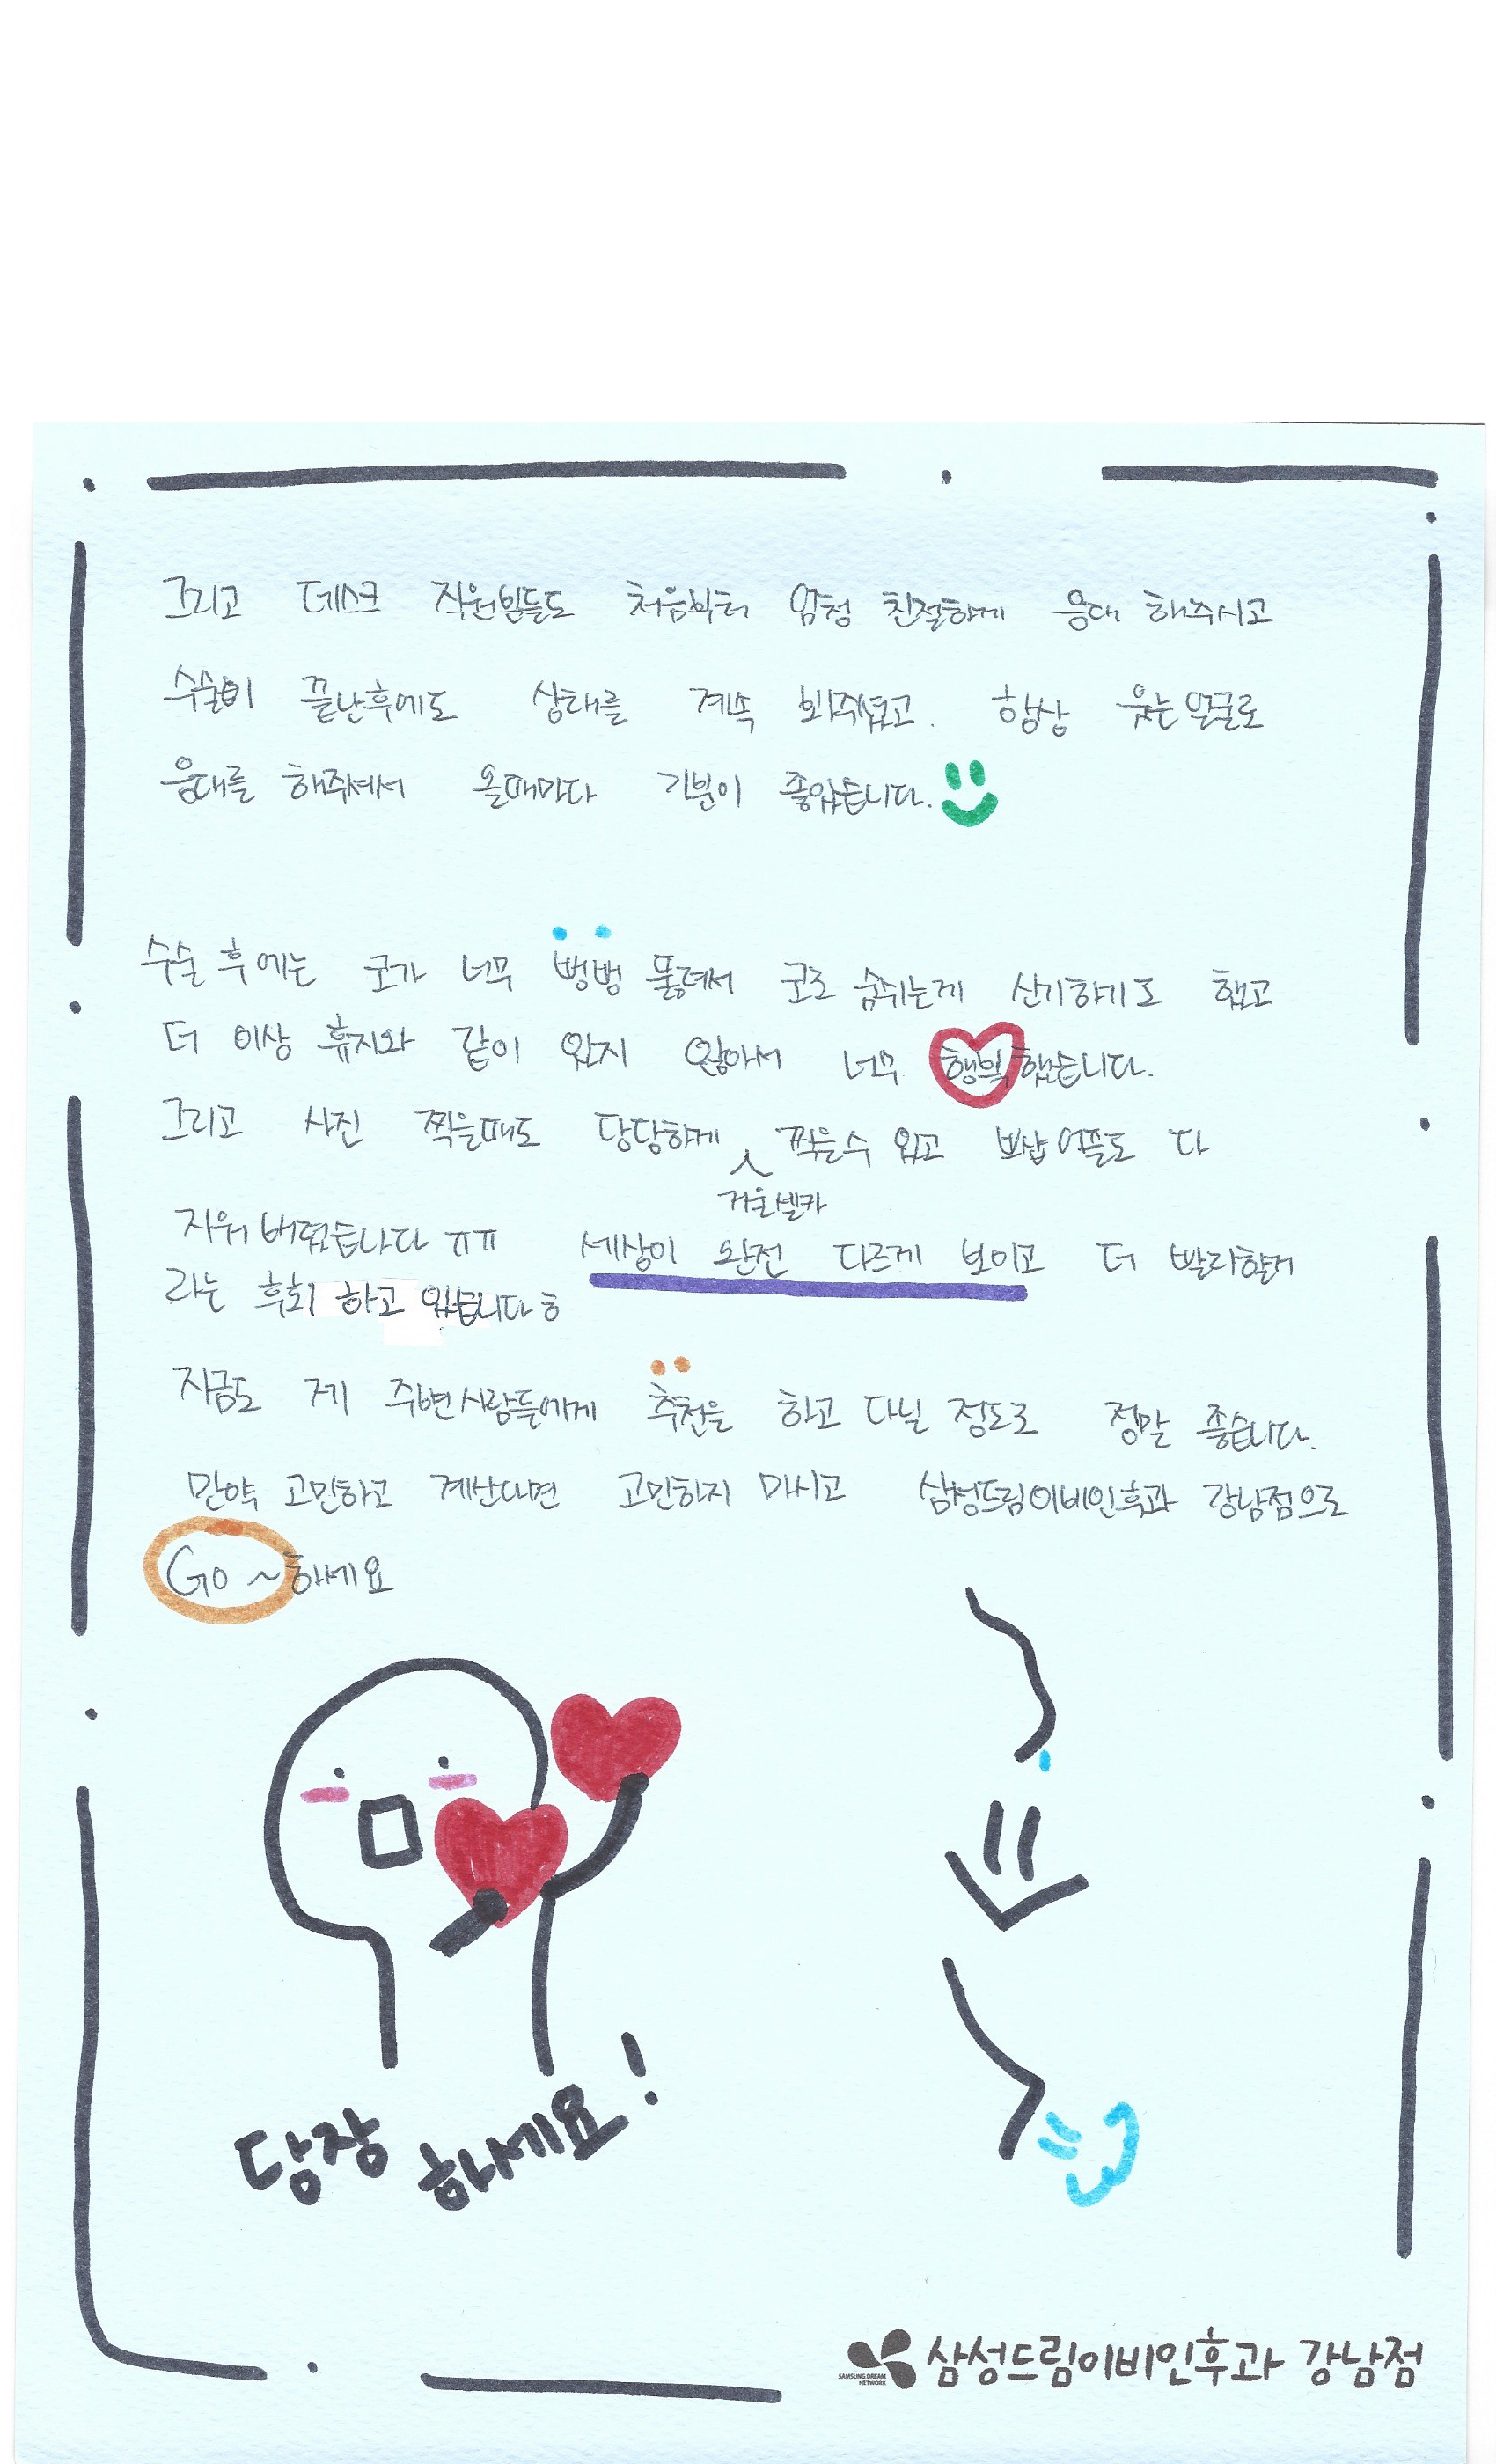 그리고 데스크 직원분들도 처음부터 엄청 친절하게 응대 해주시고
수술이 끝난후에도 상태를 계속 봐주셨고. 항상 웃는얼굴로
응대를 해주셔서 올때마다 기분이 좋았습니다.
수술 후에는 코가 너무 뻥뻥 뚫려서 코로 숨쉬는게 신기하기도 했고
더 이상 휴지와 같이 있지 않아서 너무 행복했습니다.
그리고 사진 찍을때도 당당하게 찍을수 있고 보정어플도 다
거울셀카
지워버렸습니다ㅠㅠ 세상이 완전 다르게 보이고 더 빨리할걸
라는 후회 하고 있습니다ㅎ
지금도 제 주변사람들에게 추천을 하고 다닐 정도로 정말 좋습니다.
만약 고민하고 계신다면 고민하지 마시고 삼성드림이비인후과 강남점으로
Go~하세요
당장 하세요!
SAMSUNG DREAM
NETWORK
삼성드림이비인후과 강남점